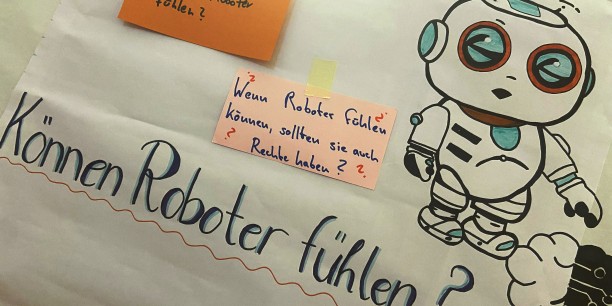 Roboter
fühlen?
? Wenn Roboter fühlen ?
können, sollten sie auch
? Rechte haben? ?
Können Roboter fühlen?